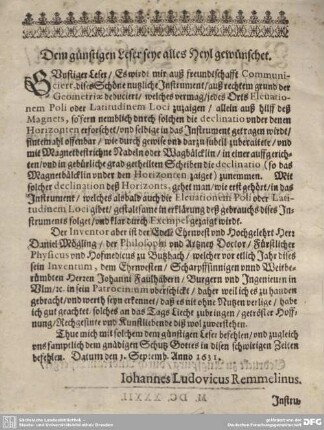 Dem günstigen Leser seye alles Heyl gewünschet.
Günstiger Leser / Es wirdt mir auß freundschafft Communi-
ciert, dises Schöne nutzliche Instrument / auß rechtem grund der
Geometriæ deduciert / welches vermag / jedes Orts Eleuatio-
nem Poli oder Latitudinem Loci zuzaigen / allein auß hilff deß
Magnets, sofern nemblich durch solchen die declinatio vnder denen
Horizonten erforschet / vnd selbige in das Instrument getragen wirdt /
mit Magnetbestrichne Nadeln oder Wagbälcklin / in einer auffgerich-
ten / vnd in gebürliche grad getheilten Scheiben die declinatio (so das
Magnetbälcklin vnder den Horizonten zaiget) zunemmen. Mit
solcher declination deß Horizonts, gehet man / wie erst gehört / in das
Instrument / welches alsbald auch die Eleuationem Poli oder Lati-
tudinem Loci gibet / gestaltsame in erklärung deß gebrauchs dises In-
struments folget / vnd klar durch Exempel gezaigt wirdt.
Der Inventor aber ist der Edell Ehrnvest vnd Hochgelehrt Herr
Daniel Mögling / der Philosophi vnd Artzney Doctor / Fürstlicher
Physicus vnd Hofmedicus zu Butzbach / welcher vor etlich Jahr dises
sein Inventum, dem Ehrnvesten / Scharpffsinnigen vnnd Weitbe-
rümbten Herren Johann Faulhabern / Burgern vnd Ingenieurn in
Vlm / rc. in sein Patrocinium vberschickt / daher weil ich es zuhanden
gebracht / vnd werth seyn erkennet / daß es nit ohne Nutzen verlige / habe
ich gut geachtet solches an das Tags Liecht zubringen / getröster Hoff-
nung / Rechtgesinte vnd Kunstliebende diß wol zuverstehen.
Thue mich mit solchem dem günstigen Leser befehlen / vnd zugleich
vns samptlich dem gnädigen Schutz Gottes in disen schwirigen Zeiten
befehlen. Datum den 1. Septemb. Anno 1631.
Iohannes Ludovicus Remmelinus.
Instru-
Sächsische Landesbibliothek -
Staats- und Universitätsbibliothek Dresden
gefördert von der
Deutschen Forschungsgemeinschaft
DFG